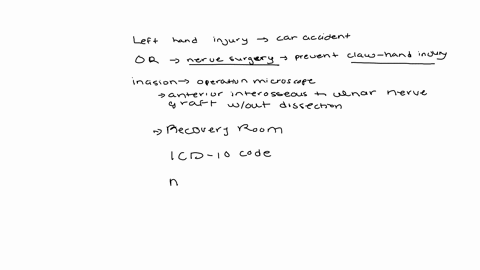 Left hand injury → car accident
OR → nerve surgery → prevent claw-hand injury
incision → operation microscope
→ anterior interosseous to ulnar nerve
graft w/out dissection
→ Recovery Room
ICD-10 code
n